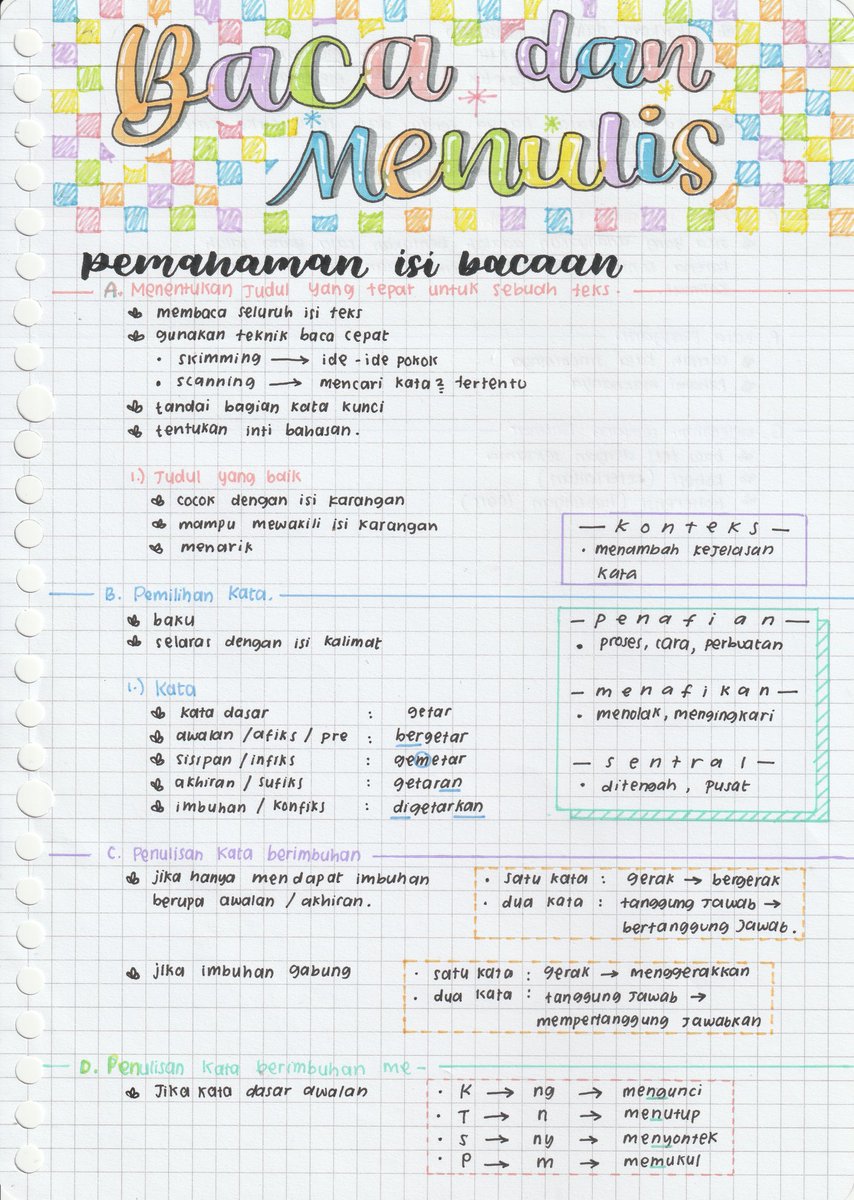 Baca dan
Menulis
pemahaman isi bacaan
A. Menentukan Judul yang tepat untuk sebuah teks.
membaca seluruh isi teks
gunakan teknik baca cepat
• skimming → ide-ide pokok
• scanning → mencari kata2 tertentu
tandai bagian kata kunci
tentukan inti bahasan.
1.) Judul yang baik
cocok dengan isi karangan
mampu mewakili isi karangan
menarik
— konteks —
• menambah kejelasan
kata
B. Pemilihan Kata.
baku
selaras dengan isi kalimat
1.) Kata
kata dasar : getar
awalan / afiks / pre : bergetar
sisipan / infiks : gemetar
akhiran / sufiks : getaran
imbuhan / konfiks : digetarkan
— penafian —
• proses, cara, perbuatan
— menafikan —
• menolak, mengingkari
— sentral —
• ditengah, pusat
C. Penulisan Kata berimbuhan
jika hanya mendapat imbuhan
berupa awalan / akhiran.
• satu kata : gerak → bergerak
• dua kata : tanggung jawab →
bertanggung jawab.
jika imbuhan gabung
• satu kata : gerak → menggerakkan
• dua kata : tanggung jawab →
mempertanggung jawabkan
D. Penulisan kata berimbuhan me-
Jika kata dasar awalan
• K → ng → mengunci
• T → n → menutup
• S → ny → menyontek
• P → m → memukul